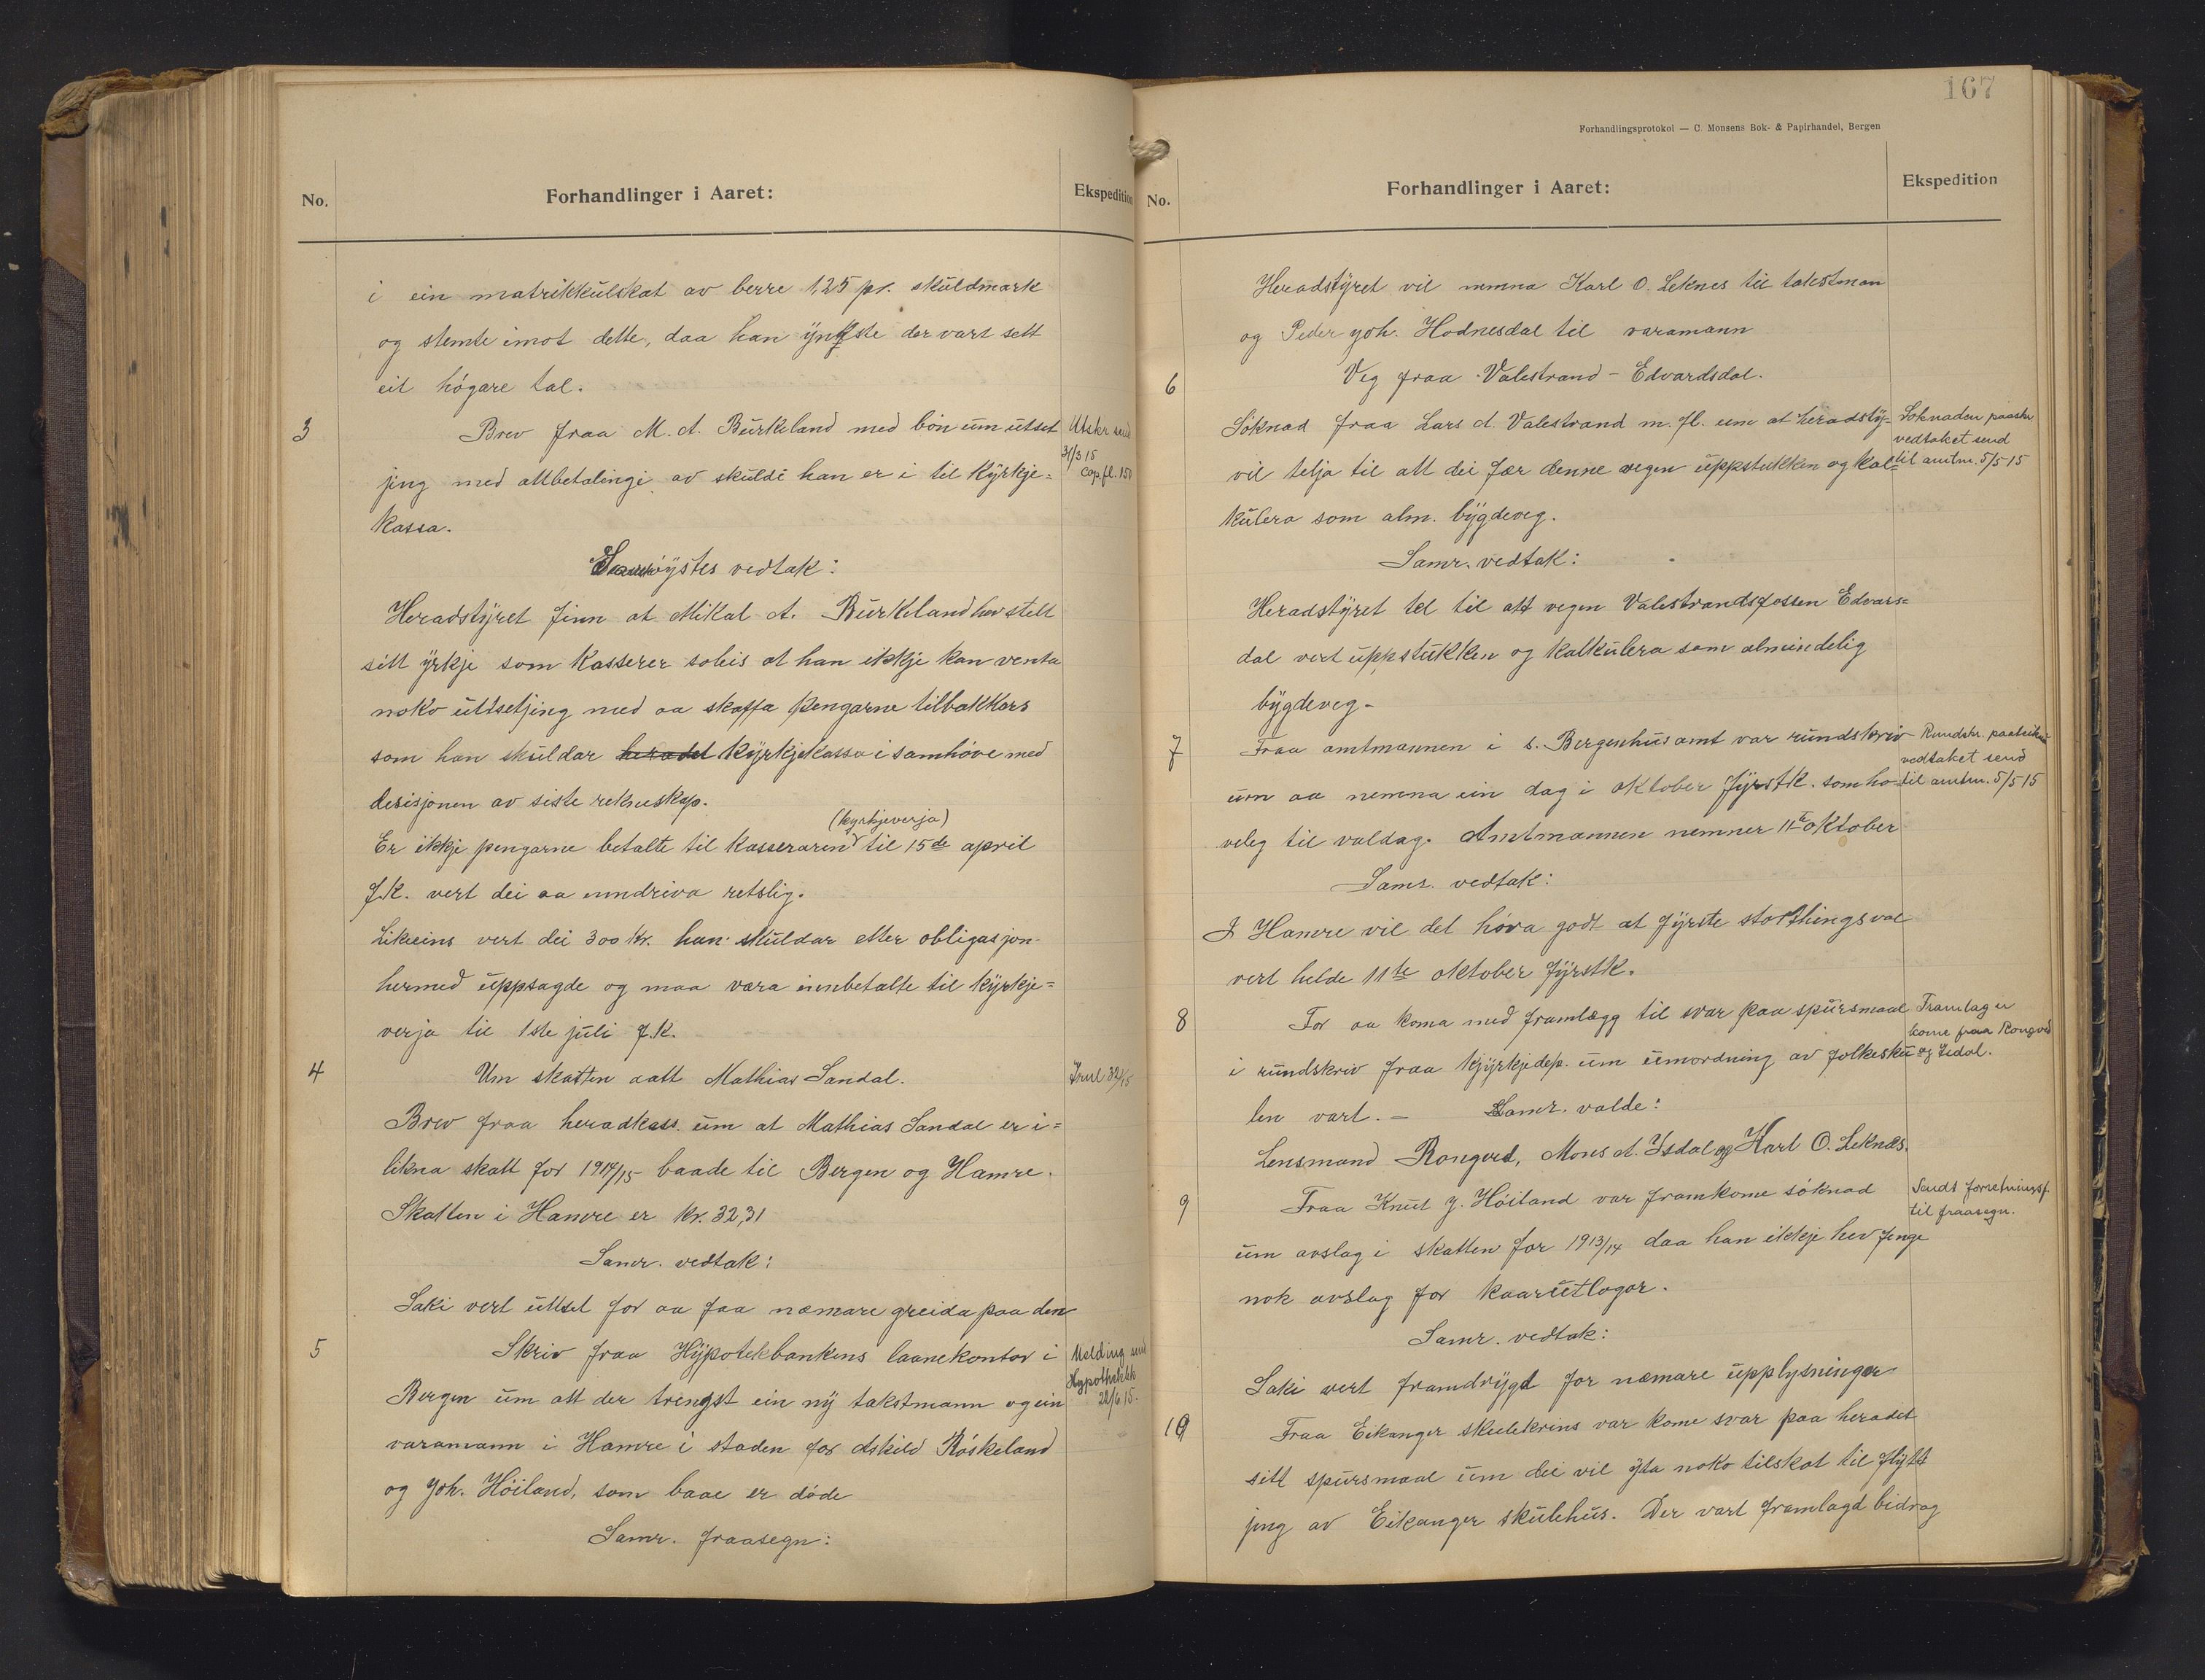 No.
Forhandlinger i Aaret:
Ekspedition
i ein matrikkulskat av berre 1,25 pr. skuldmark
og stemte imot dette, daa han ynskste der vart sett
eit högare tal.
3
Brev fraa M. A. Burkeland med bön um utset
Utskr send
31/3 15
Cop.fl. 150
jing med attbetalingi av skuldi han er i til Kyrkje=
kassa.
Samröystes vedtak:
Heradstyret finn at Mikal A. Burkeland hev stelt
sitt yrkje som Kasserer soleis at han ikkje kan venta
noko uttsetjing med aa skaffa pengarne tilbakkars
som han skuldar heradet Kyrkjekassa i samhöve med
desisjonen av siste rekneskap.
(kyrkjeverja)
Er ikkje pengarne betalte til Kasseraren til 15de april
f.k. vert dei aa inndriva retslig.
Likeeins vert dei 300 kr. han skuldar etter obligasjon
hermed uppsagde og maa vara innbetalte til kyrkje=
verja til 1ste juli f.k.
4
Um skatten aatt Mathias Sandal.
Brev fraa heradkass. um at Mathias Sandal er i=
likna skatt for 1914/15 baade til Bergen og Hamre.
Skatten i Hamre er kr. 32,31
Samr. vedtak:
Saki vert uttset for aa faa næmare greida paa den
5
Skriv fraa Hypotekbankens laanekontor i
Melding send
Hypothekbk
28/6 15.
Bergen um att der trengst ein ny takstmann og ein
varamann i Hamre i staden for Askild Röskeland
og Joh. Höiland, som baae er döde
Samr. fraasegn:
167
Forhandlingsprotokol — C. Monsens Bok- & Papirhandel, Bergen
No.
Forhandlinger i Aaret:
Ekspedition
Heradstyret vil nemna Karl O. Leknes til takstman
og Peder Joh. Hodnesdal til varamann
6
Veg fraa Valestrand - Edvardsdal.
Söknad fraa Lars A. Valestrand m. fl. um at heradsty=
Söknaden paaskr.
vedtaket send
til amtm. 5/5 15
vil telja til att dei fær denne vegen uppstukken og kal=
kulera som alm. bygdeveg.
Samr. vedtak:
Heradstyret tel til att vegen Valestrandsfossen Edvars=
dal vert uppstukken og kalkulera som almindelig
bygdeveg-
7
Fraa amtmannen i s. Bergenhus amt var rundskriv
Rundskr. paateikna
vedtaket send
til amtm. 5/5 15
um aa nemna ein dag i oktober fyrstk. som hö-
veleg til valdag. Amtmannen nemner 11te oktober
Samr. vedtak:
I Hamre vil det höva godt at fyrste storthingsval
vert helde 11te oktober fyrstk.
8
For aa koma med framlegg til svar paa spursmaal
Framlag er
kome fraa Rongved
og Isdal.
i rundskriv fraa kyrkjedep. um umordning av folkesku
len vart. - Samr. valde:
Lensmand Rongved, Mons A. Isdal og Karl O. Leknes.
9
Fraa Knut J. Höiland var framkome söknad
Sendt forretningsf.
til fraasegn.
um avslag i skatten for 1913/14 daa han ikkje hev fenge
nok avslag for kaarutlogor.
Samr. vedtak:
Saki vert framdrygd for næmare upplysninger
10
Fraa Eikanger skulekrins var kome svar paa heradet
sitt spursmaal um dei vil yta noko tilskot til flytt
jing av Eikanger skulehus. Der vart framlagd bidrag